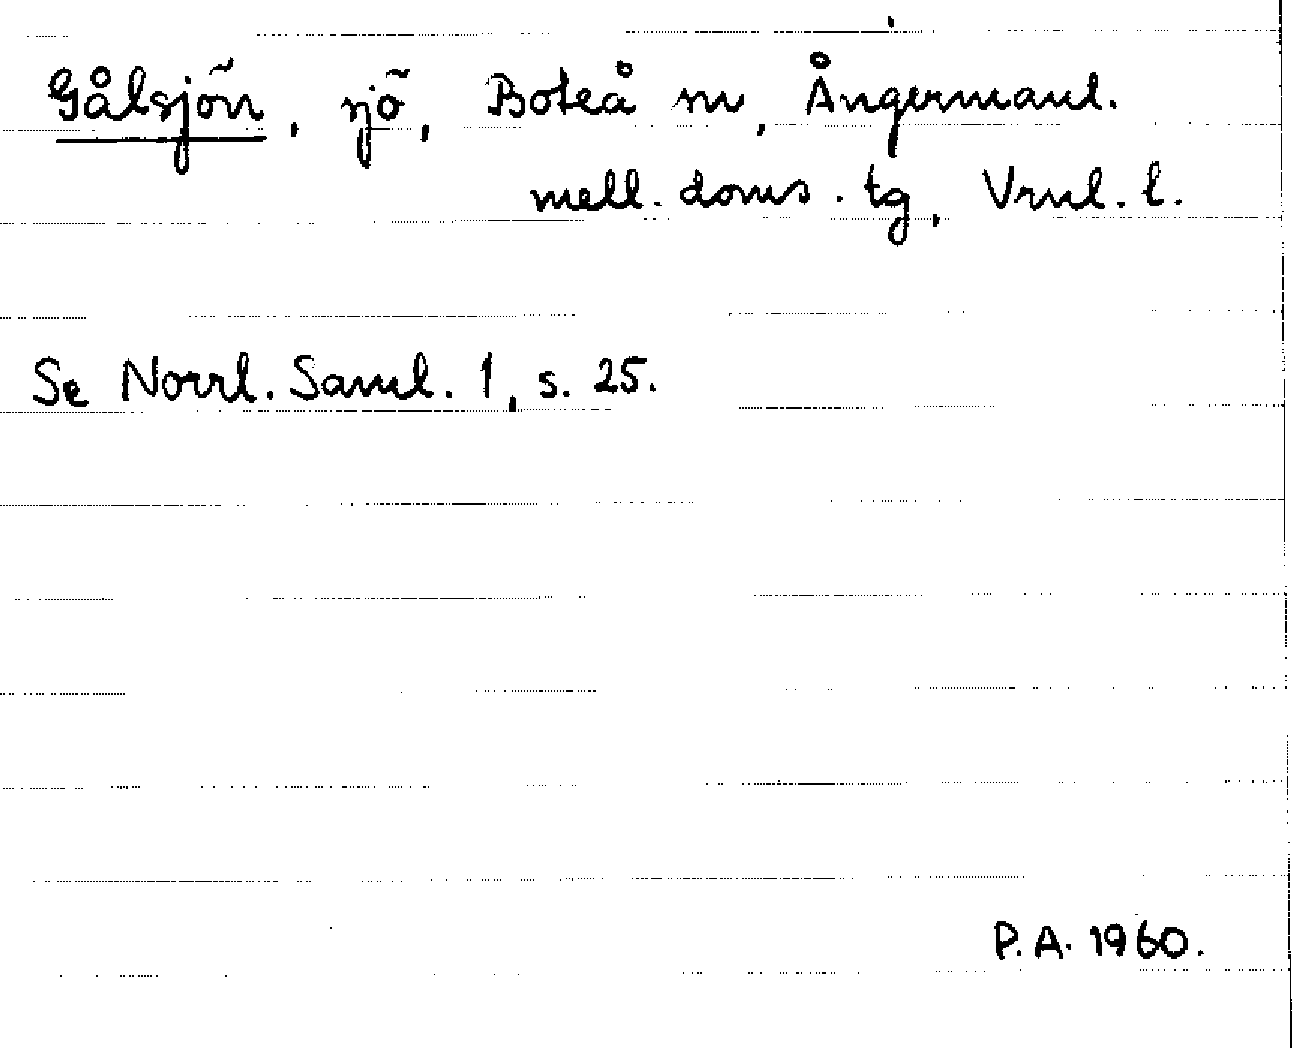 Gålsjön, sjö, Boteå sn, Ångermanl.
mell. doms. tg, Vrnl. l.
Se Norrl. Saml. 1, s. 25.
P.A. 1960.